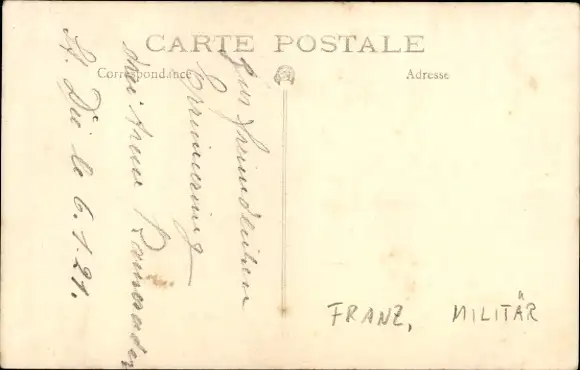 CARTE POSTALE
Correspondance
Adresse
Zur freundlichen
Erinnerung
drei Kameraden
St. Dié le 6.1.21.
FRANZ, MILITÄR